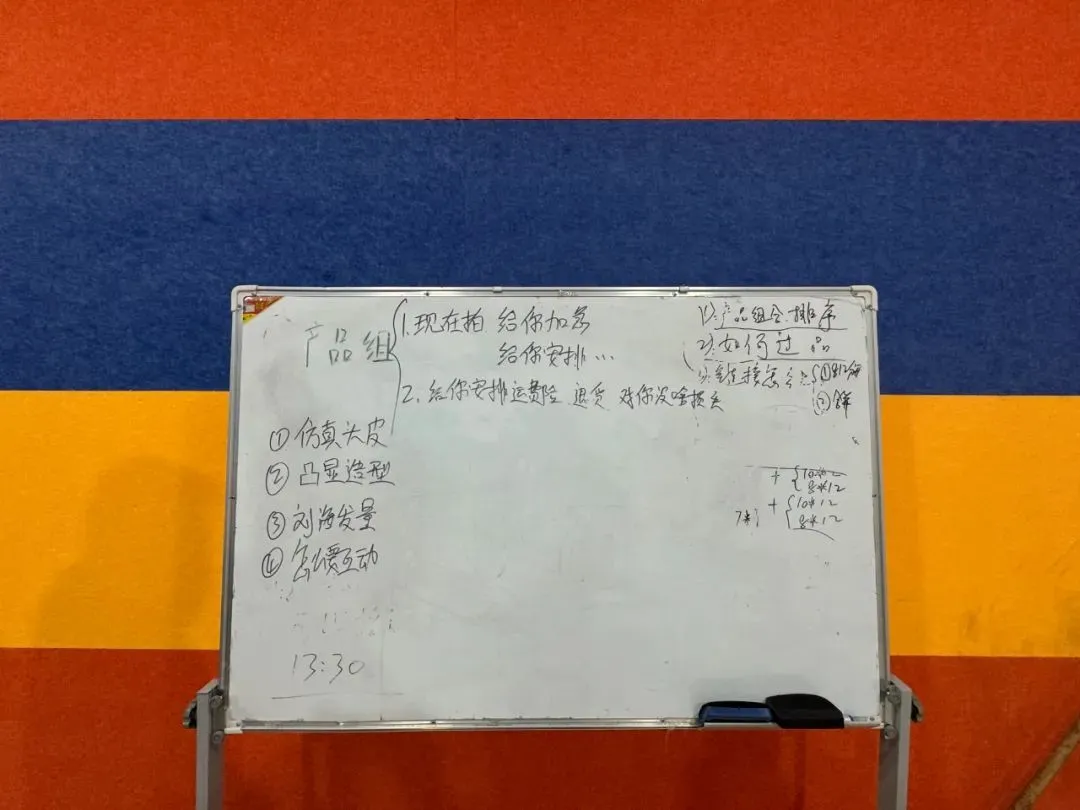 产品组
1. 现在拍 给你加急
给你安排…
2. 给你安排运费险 退货 对你没啥损失
① 仿真头皮
② 凸显造型
③ 刘海发量
④ 怎么要互动
13:30
1) 产品组合.排序
2) 如何过品
3) 链接怎
①
②
+ { 10*12
8*12
+ { 10*12
8*12